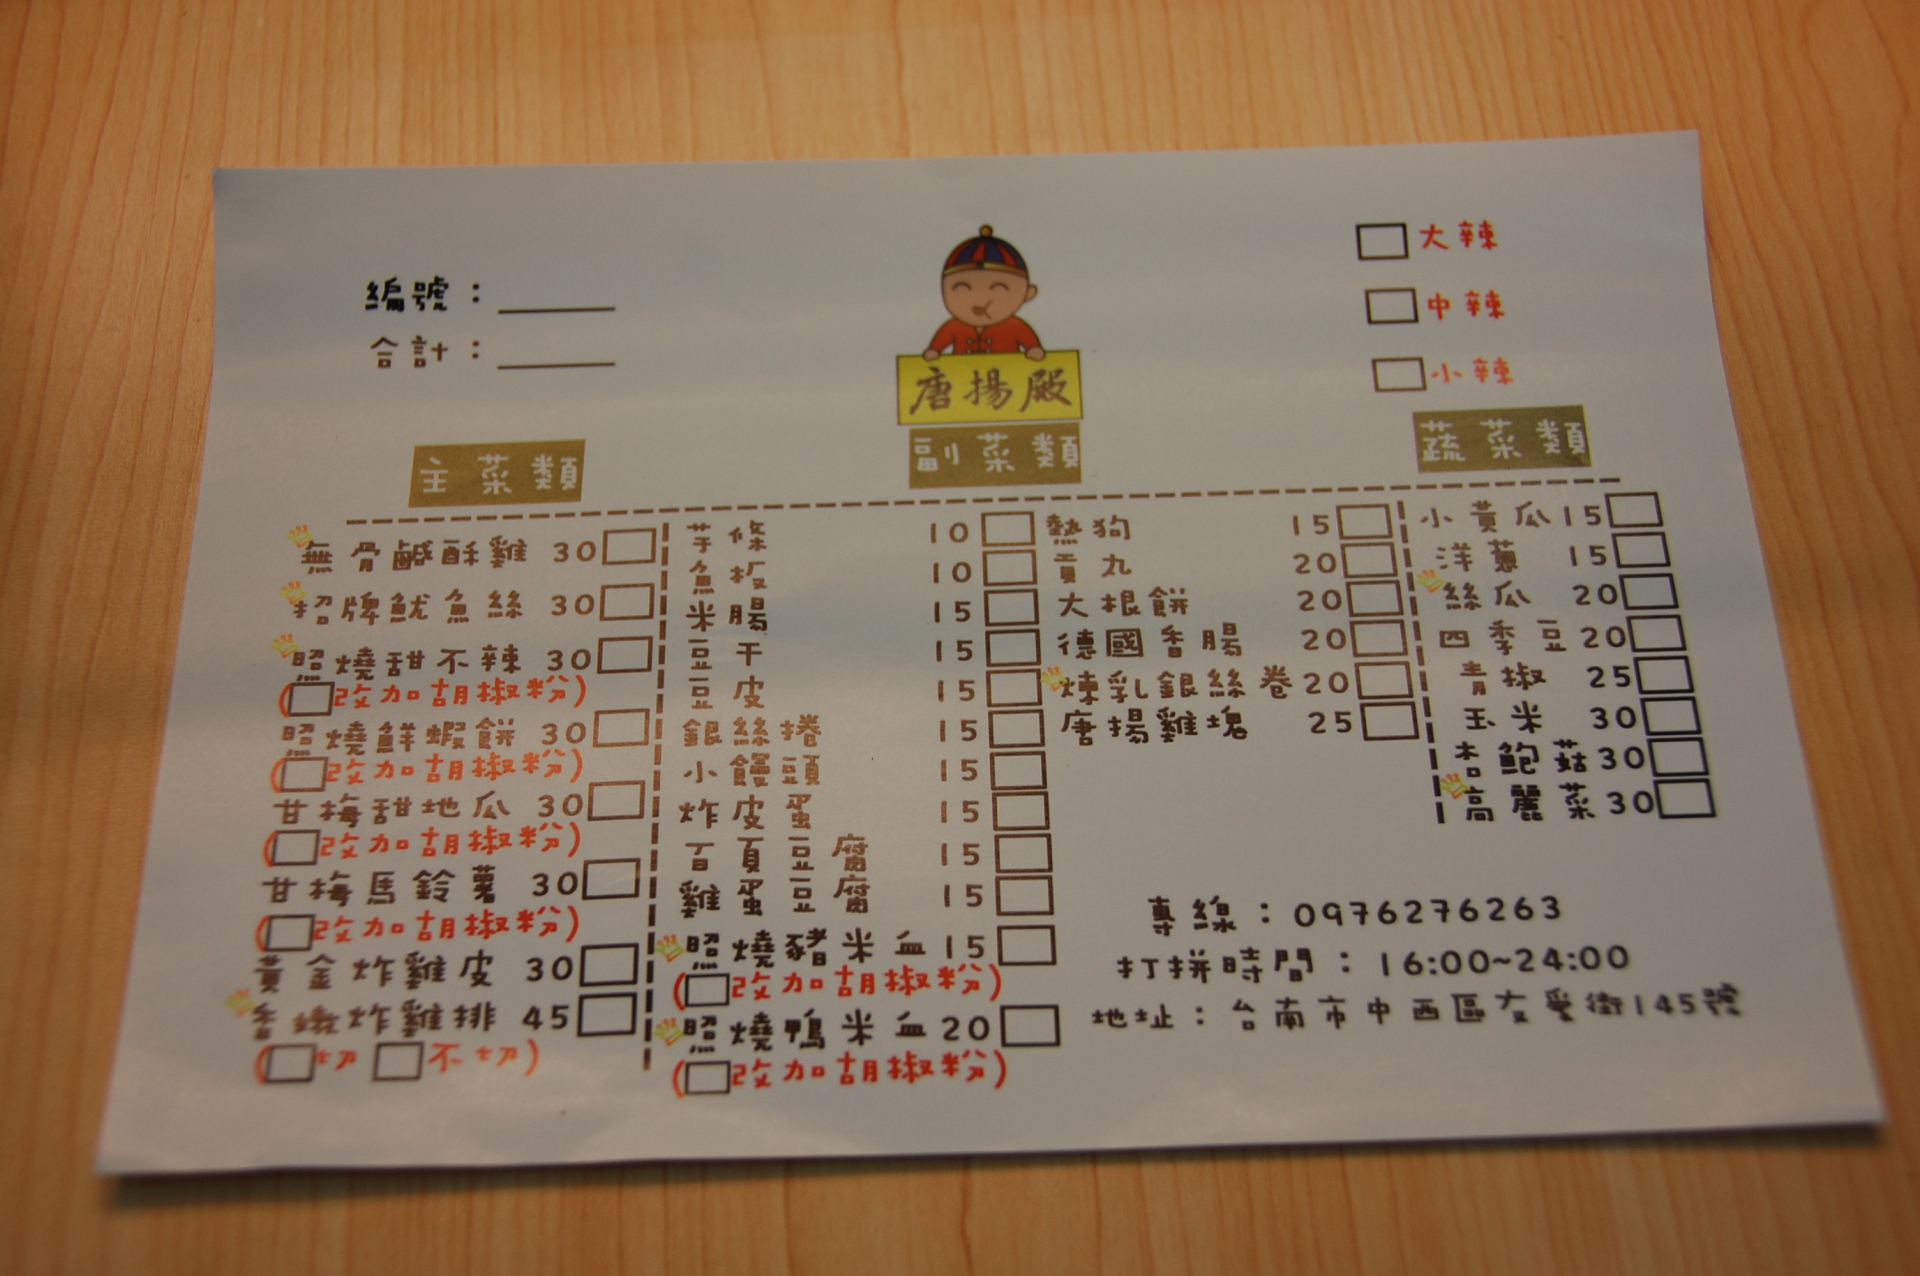 編號：
合計：
唐揚殿
大辣
中辣
小辣
主菜類
無骨鹹酥雞 30
招牌魷魚絲 30
照燒甜不辣 30
(改加胡椒粉)
照燒鮮蝦餅 30
(改加胡椒粉)
甘梅甜地瓜 30
(改加胡椒粉)
甘梅馬鈴薯 30
(改加胡椒粉)
黃金炸雞皮 30
香嫩炸雞排 45
(切 不切)
副菜類
芋條 10
魚板 10
米腸 15
豆干 15
豆皮 15
銀絲捲 15
小饅頭 15
炸皮蛋 15
百頁豆腐 15
雞蛋豆腐 15
照燒豬米血 15
(改加胡椒粉)
照燒鴨米血 20
(改加胡椒粉)
熱狗 15
貢丸 20
大根餅 20
德國香腸 20
煉乳銀絲卷 20
唐揚雞塊 25
蔬菜類
小黃瓜 15
洋蔥 15
絲瓜 20
四季豆 20
青椒 25
玉米 30
杏鮑菇 30
高麗菜 30
專線：0976276263
打拼時間：16:00~24:00
地址：台南市中西區友愛街145號